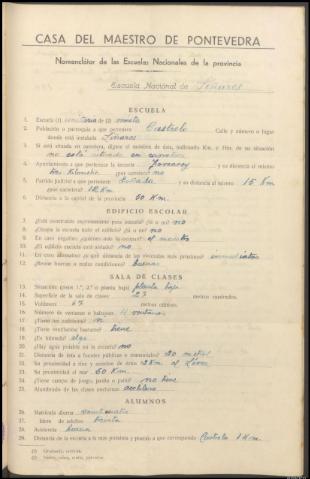 CASA DEL MAESTRO DE PONTEVEDRA
Nomenclátor de las Escuelas Nacionales de la provincia
Escuela Nacional de Liñares
ESCUELA
1. Escuela (1) unitaria de (2) mixta
2. Población o parroquia a que pertenece Castrelo Calle y número o lugar
donde está instalada Liñares
3. Si está situada en carretera, dígase el nombre de ésta, indicando Km. y Hm. de su situación
no está situada en carretera
4. Ayuntamiento a que pertenece la escuela y su distancia al mismo
Kilometros ¿por carretera? no
5. Partido judicial a que pertenece y su distancia al mismo 15 Km
¿por carretera? 12 Km
6. Distancia a la capital de la provincia 60 Km.
EDIFICIO ESCOLAR
7. ¿Está construído expresamente para escuela? no
8. ¿Ocupa la escuela todo el edificio? no
9. En caso negativo ¿quiénes más lo ocupan? el maestro
10. ¿El edificio escolar está aislado? no
11. En caso afirmativo ¿a qué distancia de las viviendas más próximas? inmediatas
12. ¿Reúne buenas o malas condiciones? buenas
SALA DE CLASES
13. Situación (piso 1.º, 2.º o planta baja) planta baja
14. Superficie de la sala de clases 27 metros cuadrados.
15. Volumen 67 metros cúbicos.
16. Número de ventanas o balcones 4 ventanas
17. ¿Tiene luz suficiente? si
18. ¿Tiene ventilación bastante? tiene
19. ¿Es húmeda? algo
20. ¿Hay agua potable en la escuela? no
21. Distancia de ésta a fuentes públicas o comunales? 20 metros
22. Su proximidad a ríos y nombre de éstos 2 Km el
23. Su proximidad al mar 60 Km.
24. ¿Tiene campo de juego, jardín o patio? no tiene
25. Alumbrado de las clases nocturnas
ALUMNOS
26. Matrícula diurna
27. íd. de adultos treinta
28. Asistencia buena
29. Distancia de la escuela a la más próxima y pueblo a que corresponde Castrelo 1 Km.
(1) Graduada, unitaria.
(2) Niños, niñas, mixta, párvulos.